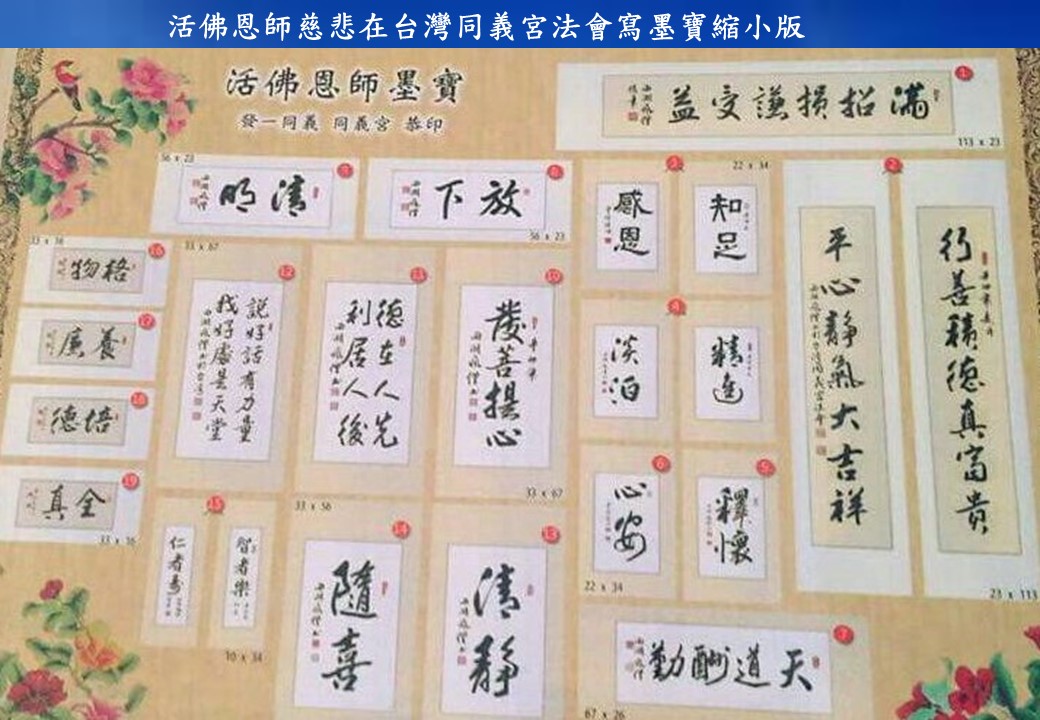 活佛恩師慈悲在台灣同義宮法會寫墨寶縮小版
活佛恩師墨寶
發一同義 同義宮 恭印
1
滿招損謙受益
113 x 23
2
行善積德真富貴
平心靜氣大吉祥
23 x 113
3
22 x 34
知足
感恩
4
精進
淡泊
5
釋懷
6
心安
22 x 34
7
天道酬勤
67 x 26
8
放下
56 x 23
9
清明
56 x 23
10
發菩提心
33 x 67
11
德在人先
利居人後
33 x 56
12
說好話有力量
找好處是天堂
33 x 67
13
清靜
14
隨喜
15
智者樂
仁者壽
10 x 34
16
格物
33 x 16
17
養廉
18
培德
19
全真
33 x 16